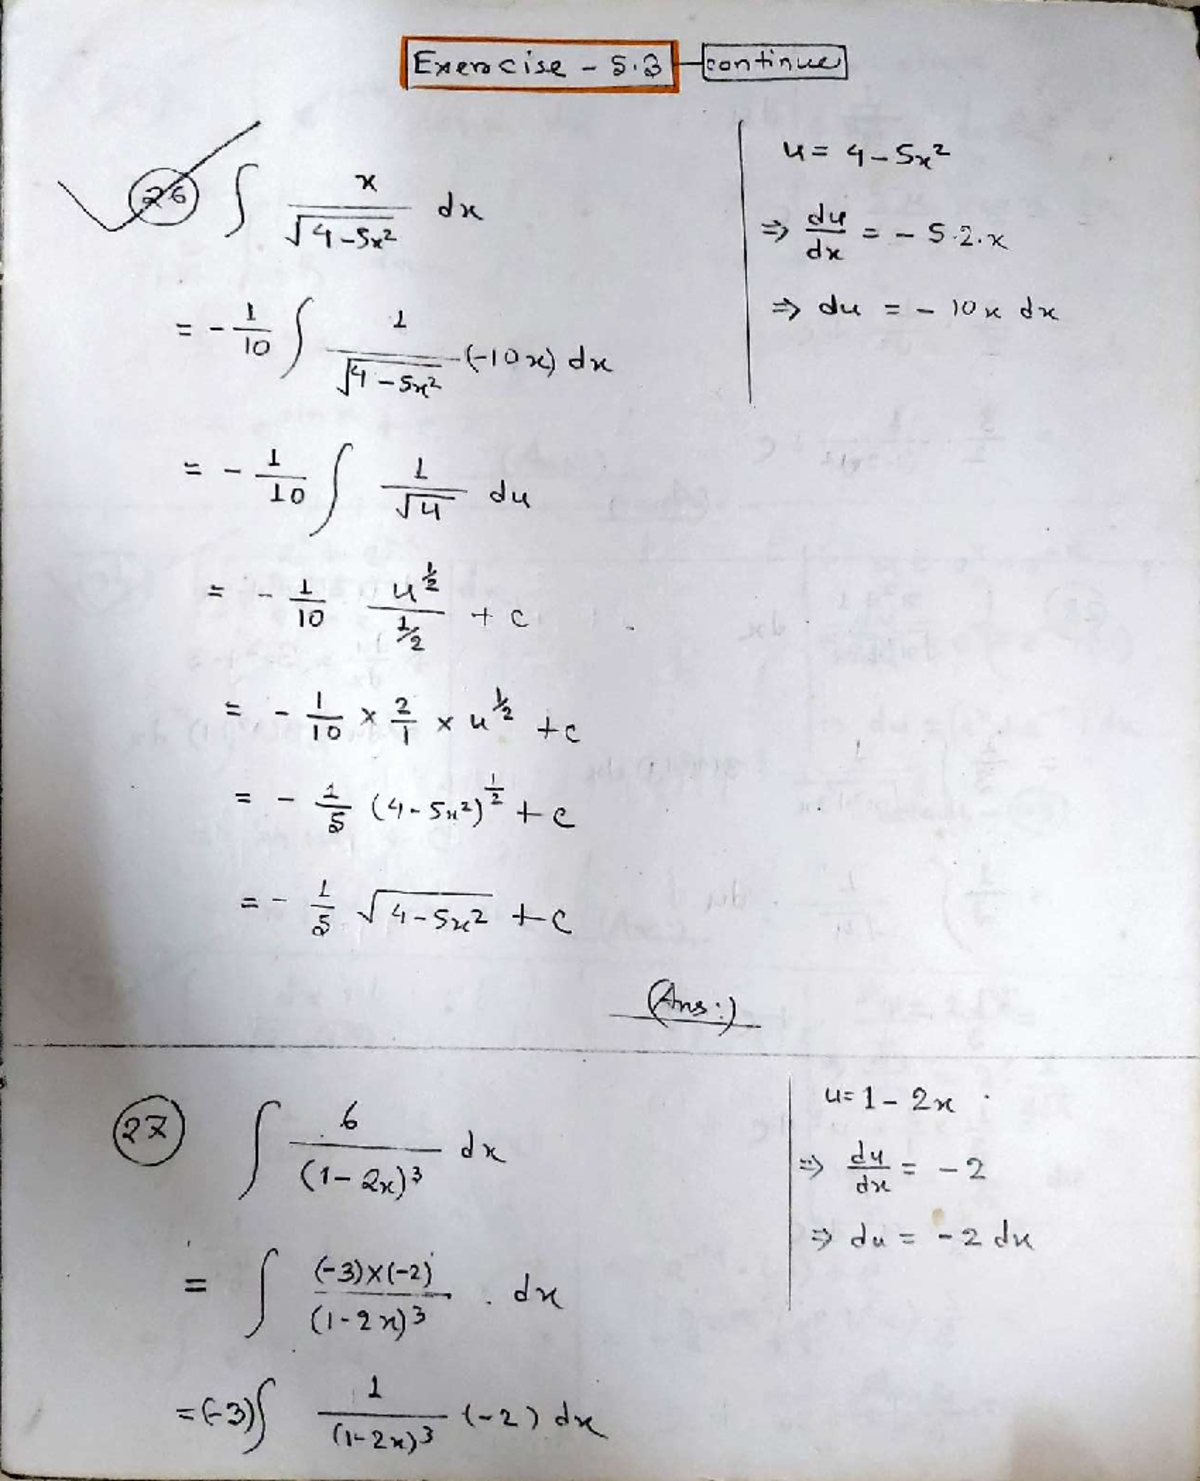 Exercise - 5.3 continue
26 ∫ x/√(4-5x²) dx
= -1/10 ∫ 1/√(4-5x²) (-10x) dx
= -1/10 ∫ 1/√u du
= -1/10 u^(1/2)/(1/2) + c
= -1/10 × 2/1 × u^(1/2) + c
= -1/5 (4-5x²)^(1/2) + c
= -1/5 √(4-5x²) + c
(Ans:)
u = 4-5x²
⇒ du/dx = -5.2.x
⇒ du = -10x dx
27 ∫ 6/(1-2x)³ dx
= ∫ (-3)×(-2)/(1-2x)³ . dx
= (-3)∫ 1/(1-2x)³ (-2) dx
u = 1-2x
⇒ du/dx = -2
⇒ du = -2 dx